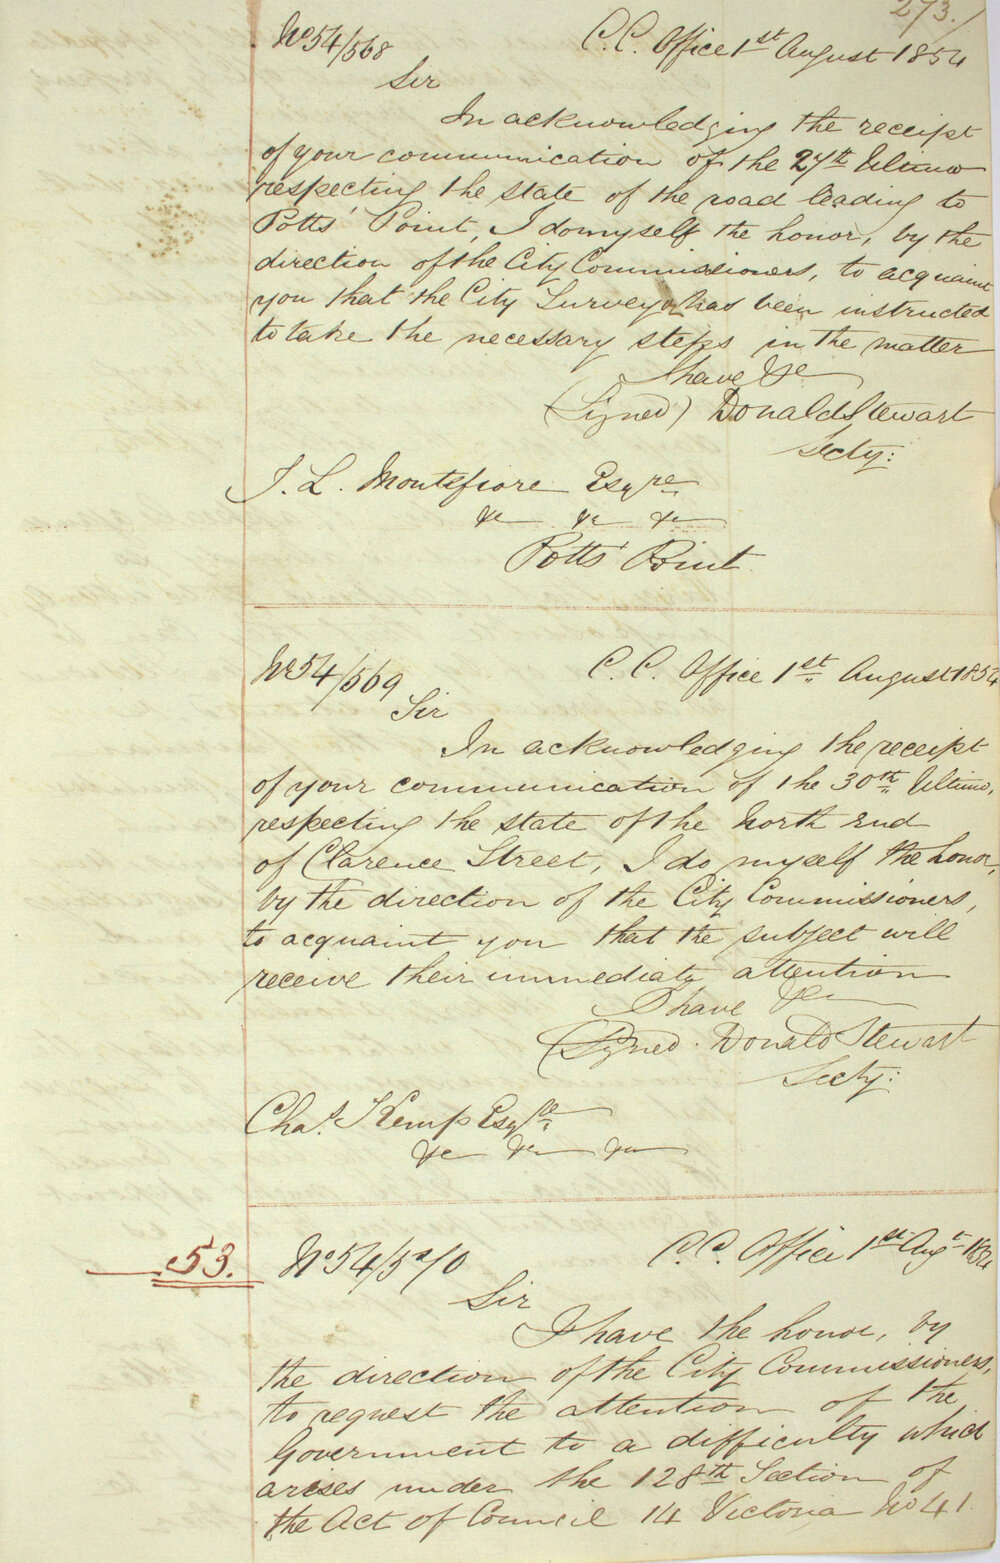 273.
No 54/568 C.C. Office 1st August 1854
Sir
In acknowledging the receipt
of your communication of the 27th Ultimo
respecting the state of the road leading to
Potts' Point, I do myself the honor, by the
direction of the City Commissioners, to acquaint
you that the City Surveyor has been instructed
to take the necessary steps in the matter
I have &c
(Signed) Donald Stewart
Secty:
J. L. Montefiore Esqre
&c &c &c
Potts' Point
No 54/569 C. C. Office 1st August 1854
Sir
In acknowledging the receipt
of your communication of the 30th Ultimo,
respecting the state of the North End
of Clarence Street, I do myself the honor,
by the direction of the City Commissioners,
to acquaint you that the subject will
receive their immediate attention
I have &c
(Signed. Donald Stewart
Secty:
Chas. Kemp Esqre
&c &c &c
53. No 54/570 C.C. Office 1st Augt 1854
Sir
I have the honor, by
the direction of the City Commissioners,
to request the attention of the
Government to a difficulty which
arises under the 128th Section of
the Act of Council 14 Victoria No 41